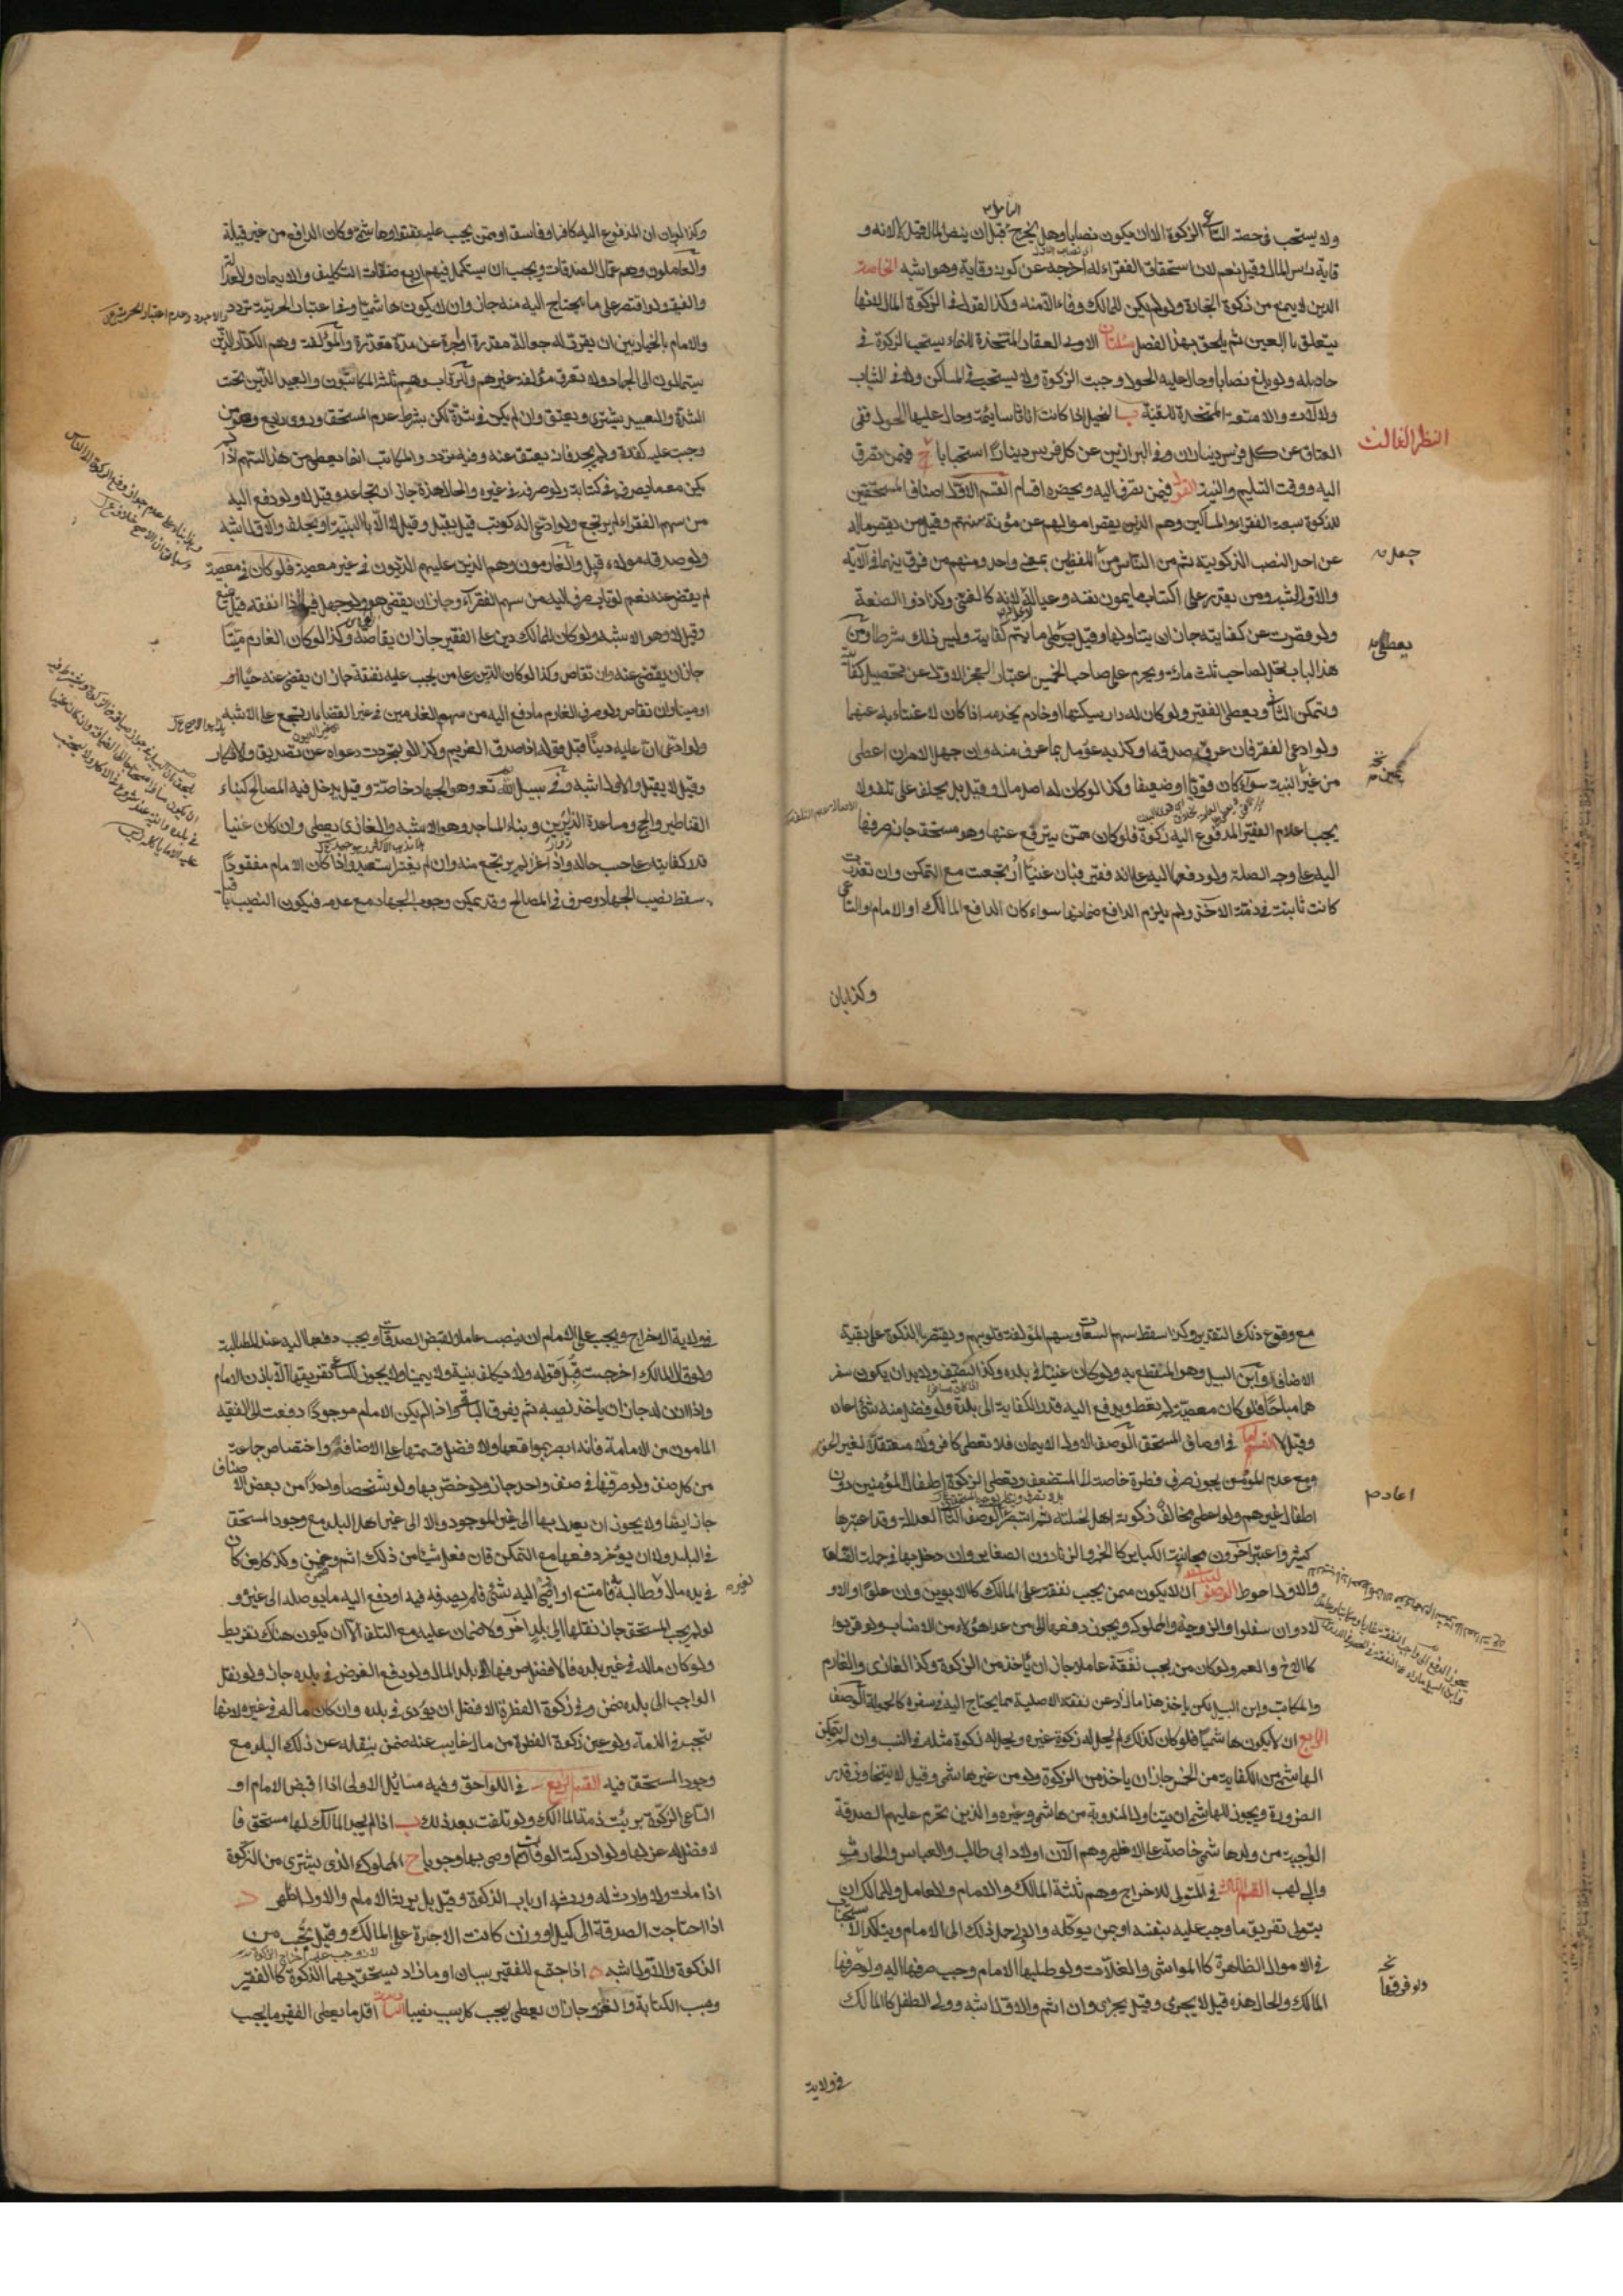 ولا يستحب في حصة الساعي الزكوة الا ان يكون نصابا وهل يخرج قبل ان ينض المال قيل لا لانه و
قاية لراس المال وقيل نعم لان استحقاق الفقراء له اخرجه عن كونه وقاية وهو اشبه الخامسة
الدين لا يمنع من زكوة التجارة ولو لم يكن للمالك وفاء الا منه وكذا القول في الزكوة المال لانها
يتعلق بالعين ثم يلحق بهذا الفصل مسئلتان الاولى العقار المتخذة للنماء يستحب الزكوة في
حاصله ولو بلغ نصابا وحال عليه الحول وجبت الزكوة ولا يستحب في المساكن ولا في الثياب
ولا الآلات والامتعة المتخذة للقنية ب الخيل اذا كانت اناثا سائمة وحال عليها الحول ففي
العتاق عن كل فرس ديناران وفي البراذين عن كل فرس دينار استحبابا فيمن تصرف
النظر الثالث
اليه ووقت التسليم والنية القول فيمن تصرف اليه ويحضره اقسام القسم الاول اصناف المستحقين
للزكوة سبعة الفقراء والمساكين وهم الذين يقصر اموالهم عن مؤنة سنتهم وقيل من يقصر ماله
عن احد النصب الزكوية ثم من الناس من جعل اللفظين بمعنى واحد ومنهم من فرق بينهما في الآية
والاول اشبه ومن يقدر على اكتساب ما يمون نفسه وعياله لانه كالغني وكذا ذو الصنعة
ولو قصرت عن كفايته جاز ان يتناولها وقيل يعطى ما يتم كفايته وليس ذلك شرطا ومن
هذا الباب تحل لصاحب ثلث مائة ويحرم على صاحب الخمسين اعتبارا لعجز الاول عن تحصيل كفايته
وتمكن الثاني ويعطى الفقير ولو كان له دار يسكنها او خادم يخدمه اذا كان لا غناء به عنهما
ولو ادعى الفقر فان عرف صدقه او كذبه عومل بما عرف منه وان جهل الامران اعطى
من غير البينة سواء كان قويا او ضعيفا وكذا لو كان له اصل مال وقيل بل يحلف على تلفه ولا
يجب اعلام الفقير المدفوع اليه زكوة فلو كان ممن يترفع عنها وهو مستحق جاز صرفها
اليه على وجه الصلة ولو دفعها اليه على انه فقير فبان غنيا ارتجعت مع التمكن وان تعذرت
كانت ثابتة في ذمة الآخذ ولم يلزم الدافع ضمانها سواء كان الدافع المالك او الامام او الساعي
وكذا لو بان
وكذا لو بان ان المدفوع اليه كافر او فاسق او ممن يجب عليه نفقته او هاشمي وكان الدافع من غير قبيله
والعاملون وهم عمال الصدقات ويجب ان يستكمل فيهم اربع صفات التكليف والايمان والعدالة
والفقه ولو اقتصر على ما يحتاج اليه منه جاز وان لا يكون هاشميا وفي اعتبار الحرية تردد
والامام بالخيار بين ان يقرر له جعالة مقدرة او اجرة عن مدة مقدرة والمؤلفة وهم الكفار الذين
يستمالون الى الجهاد ولا نعرف مؤلفة غيرهم والرقاب وهم ثلثة المكاتبون والعبيد الذين تحت
الشدة والعبد يشترى ويعتق وان لم يكن في شدة لكن بشرط عدم المستحق وروى رابع وهو من
وجب عليه كفارة ولم يجد فانه يعتق عنه وفيه تردد والمكاتب انما يعطى من هذا السهم اذا لم
يكن معه ما يصرفه في كتابته ولو صرفه في غيره والحال هذه جاز ارتجاعه وقيل لا ولو دفع اليه
من سهم الفقراء لم يرتجع ولو ادعى انه كوتب قيل يقبل وقيل لا الا بالبينة او يحلف والاول اشبه
ولو صدقه مولاه قبل والغارمون وهم الذين عليهم الديون في غير معصية فلو كان في معصية
لم يقض عنه نعم لو تاب صرف اليه من سهم الفقراء وجاز ان يقضي هو ولو جهل فيما ذا انفقه قيل يمنع
وقيل لا وهو الاشبه ولو كان للمالك دين على الفقير جاز ان يقاصه وكذا لو كان الغارم ميتا
جاز ان يقضى عنه وان تقاص وكذا لو كان الدين على من يجب عليه نفقته جاز ان يقضى عنه حيا او
او ميتا وان تقاص ولو صرف الغارم ما دفع اليه من سهم الغارمين في غير القضاء ارتجع على الاشبه
ولو ادعى ان عليه دينا قبل قوله اذا صدقه الغريم وكذا لو تجردت دعواه عن تصديق والانكار
وقيل لا يقبل والاول اشبه وفي سبيل الله تع وهو الجهاد خاصة وقيل يدخل فيه المصالح كبناء
القناطير والحج ومساعدة الزائرين وبناء المساجد وهو الاشبه والغازي يعطى وان كان غنيا
قدر كفايته على حسب حاله واذا غزا لم يرتجع منه وان لم يغز استعيد واذا كان الامام مفقودا
سقط نصيب الجهاد وصرف في المصالح وقد يمكن وجوب الجهاد مع عدمه فيكون النصيب باقيا
مع وقوع ذلك التقدير وكذا سقط سهم السعاة وسهم المؤلفة قلوبهم ويقتصر بالزكوة على بقية
الاصناف وابن السبيل وهو المنقطع به ولو كان غنيا في بلده وكذا الضيف ولا بد ان يكون سفر
هما مباحا فلو كان معصية لم يعط ويدفع اليه قدر الكفاية الى بلده ولو فضل منه شئ اعاده
وقيل لا القسم الثاني في اوصاف المستحق الوصف الاول الايمان فلا تعطى كافر ولا معتقدا لغير الحق
ومع عدم المؤمن يجوز صرف فطرة خاصة الى المستضعف ويعطى الزكوة اطفال المؤمنين دون
اعاده
اطفال غيرهم ولو اعطى مخالف زكوته اهل نحلته ثم استبصر اعاد الوصف الثاني العدالة وقد اعتبرها
كثير واعتبر آخرون مجانبة الكباير كالخمر والزنا دون الصغاير وان دخل بها في جملة الفساق
والاول احوط الوصف الثالث ان لا يكون ممن يجب نفقته على المالك كالابوين وان علوا والاو
لاد وان سفلوا والزوجة والمملوك ويجوز دفعها الى من عدا هؤلاء من الانساب ولو قربوا
كالاخ والعم ولو كان من يجب نفقته عاملا جاز ان يأخذ من الزكوة وكذا الغازي والغارم
والمكاتب وابن السبيل لكن يأخذ هذا ما زاد عن نفقته الاصلية مما يحتاج اليه في سفره كالحمولة الوصف
الرابع ان لا يكون هاشميا فلو كان كذلك لم يحل له زكوة غيره ويحل له زكوة مثله في النسب وان لم يتمكن
الهاشمي من الكفاية من الخمس جاز ان ياخذ من الزكوة ولو من غير هاشمي وقيل لا يتجاوز قدر
الضرورة ويجوز للهاشمي ان يتناول المندوبة من هاشمي وغيره والذين يحرم عليهم الصدقة
الواجبة من ولد هاشم خاصة على الاظهر وهم الآن اولاد ابي طالب والعباس والحارث
وابي لهب القسم الثالث في المتولي للاخراج وهم ثلثة المالك والامام والعامل وللمالك ان
يتولى تفريق ما وجب عليه بنفسه او بمن يوكله والاولى حمل ذلك الى الامام ويتأكد الاستحباب
في الاموال الظاهرة كالمواشي والغلات ولو طلبها الامام وجب صرفها اليه ولو فرقها
المالك والحال هذه قيل لا يجزى وقيل يجزى وان اثم والاول اشبه وولي الطفل كالمالك
في ولاية
في ولاية الاخراج ويجب على الامام ان ينصب عاملا لقبض الصدقات ويجب دفعها اليه عند المطالبة
ولو قال المالك اخرجت قبل قوله ولا يكلف بينة ولا يمينا ولا يجوز للساعي تفريقها الا باذن الامام
واذا اذن له جاز ان ياخذ نصيبه ثم يفرق الباقي واذا لم يكن الامام موجودا دفعت الى الفقيه
المأمون من الامامية فانه ابصر بمواقعها والافضل قسمتها على الاصناف واختصاص جماعة
من كل صنف ولو صرفها في صنف واحد جاز ولو خص بها ولو شخصا واحدا من بعض الاصناف
جاز ايضا ولا يجوز ان يعدل بها الى غير الموجود ولا الى غير اهل البلد مع وجود المستحق
في البلد ولا ان يؤخر دفعها مع التمكن فان فعل شيئا من ذلك اثم وضمن وكذا كل من كان
في يده مال لغيره فطالبه فامتنع او اوصي اليه شئ فلم يصرفه فيه او دفع اليه ما يوصله الى غيره و
لو لم يجد المستحق جاز نقلها الى بلد آخر ولا ضمان عليه مع التلف الا ان يكون هناك تفريط
ولو كان ماله في غير بلده فالافضل صرفها في بلد المال ولو دفع العوض في بلده جاز ولو نقل
الواجب الى بلده ضمن وفي زكوة الفطرة الافضل ان يؤدى في بلده وان كان ماله في غيره لانها
تجب في الذمة ولو عين زكوة الفطرة من مال غايب عنه ضمن بنقله عن ذلك البلد مع
وجود المستحق فيه القسم الرابع في اللواحق وفيه مسائل الاولى اذا قبض الامام او
الساعي الزكوة برئت ذمة المالك ولو تلفت بعد ذلك ب اذا لم يجد المالك لها مستحق فا
لافضل له عزلها ولو ادركته الوفات اوصى بها وجوبا ج المملوك الذي يشترى من الزكوة
اذا مات ولا وارث له ورثه ارباب الزكوة وقيل بل يرثه الامام والاول اظهر د
اذا احتاجت الصدقة الى كيل او وزن كانت الاجرة على المالك وقيل تحتسب من
الزكوة والاول اشبه ه اذا جتمع للفقير سببان او ما زاد يستحق بهما الزكوة كالفقير
وبسبب الكتابة والغزو جاز ان يعطى بحسب كل سبب نصيبا السادسة اقل ما يعطى الفقير ما يجب